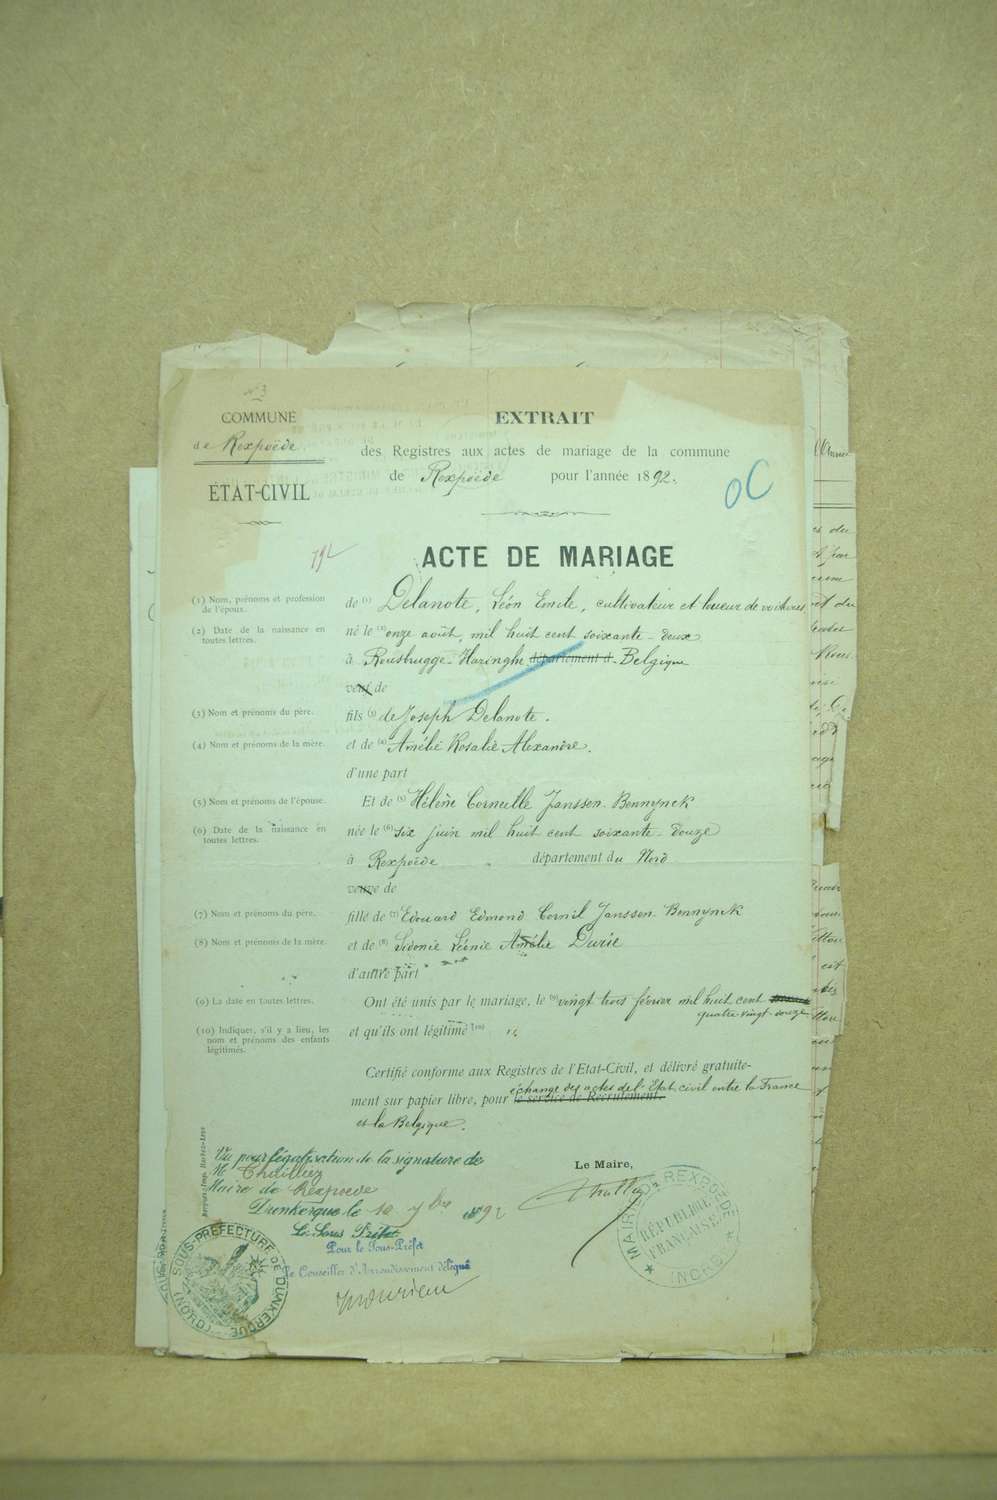 N° 3
COMMUNE
de Rexpoëde
ÉTAT-CIVIL
EXTRAIT
des Registres aux actes de mariage de la commune
de Rexpoëde pour l'année 1892.
OC
ACTE DE MARIAGE
(1) Nom, prénoms et profession de l'époux.
de (1) Delanote, Léon Emile, cultivateur et loueur de voitures
(2) Date de la naissance en toutes lettres.
né le (2) onze août, mil huit cent soixante-deux
à Rousbrugge-Haringhe département d Belgique
veuf de
(3) Nom et prénoms du père.
fils (3) de Joseph Delanote.
(4) Nom et prénoms de la mère.
et de (4) Amélie Rosalie Alexandre.
d'une part
(5) Nom et prénoms de l'épouse.
Et de (5) Hélène Corneille Janssen-Bennynck
(6) Date de la naissance en toutes lettres.
née le (6) six juin mil huit cent soixante-douze
à Rexpoëde département du Nord
veuve de
(7) Nom et prénoms du père.
fille de (7) Edouard Edmond Cornil Janssen-Bennynck
(8) Nom et prénoms de la mère.
et de (8) Sidonie Léonie Amélie Durie
d'autre part
(9) La date en toutes lettres.
Ont été unis par le mariage, le (9) vingt trois février mil huit cent
quatre-vingt-douze
(10) Indiquer, s'il y a lieu, les nom et prénoms des enfants légitimés.
et qu'ils ont légitimé (10)
Certifié conforme aux Registres de l'Etat-Civil, et délivré gratuite-
ment sur papier libre, pour le service de Recrutement.
échange des actes de l'Etat civil entre la France
et la Belgique.
Vu pour légalisation de la signature de
M. Thuilliez
Maire de Rexpoede
Dunkerque le 10 7bre 1892
Le Sous Préfet
Pour le Sous-Préfet
Le Conseiller d'Arrondissement délégué
Le Maire,
MAIRIE DE REXPOËDE
RÉPUBLIQUE FRANÇAISE
(NORD)
SOUS-PRÉFECTURE DE DUNKERQUE (NORD)